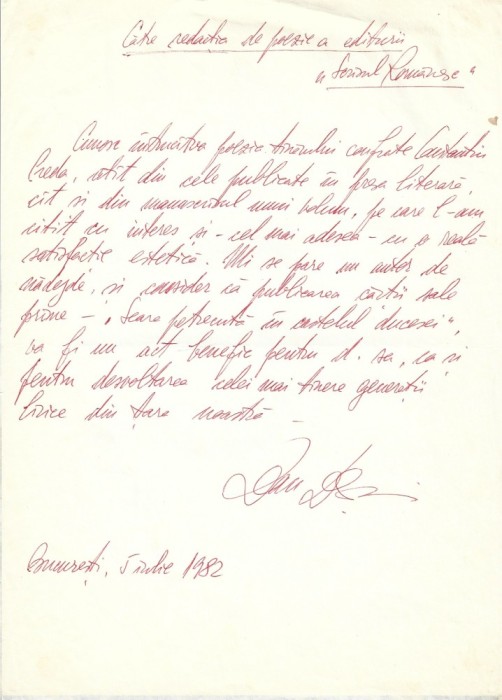 Către redacția de poezie a editurii
„Scrisul Românesc"
Cunosc întrucâtva poezia tânărului confrate Constantin
Preda, atît din cele publicate în presa literară,
cît și din manuscrisul unui volum, pe care l-am
citit cu interes și - cel mai adesea - cu o reală
satisfacție estetică. Mi se pare un autor de
nădejde, și consider că publicarea cărții sale
prime - „Seara petrecută în castelul ducesei",
va fi un act benefic pentru d. sa, ca și
pentru dezvoltarea celei mai tinere generații
lirice din țara noastră -
Dan
București, 5 iulie 1982